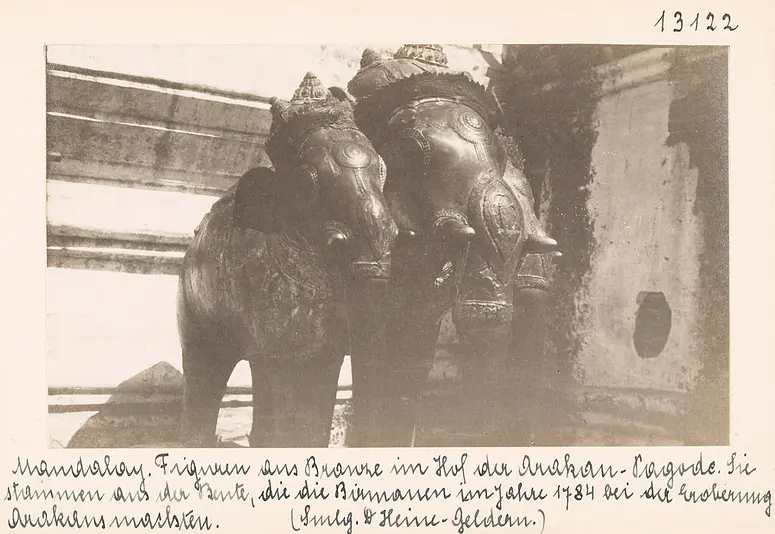 13122
Mandalay. Figuren aus Bronze im Hof der Arakan-Pagode. Sie
stammen aus der Beute, die die Birmanen im Jahre 1784 bei der Eroberung
Arakans machten. (Smlg. D Heine-Geldern.)